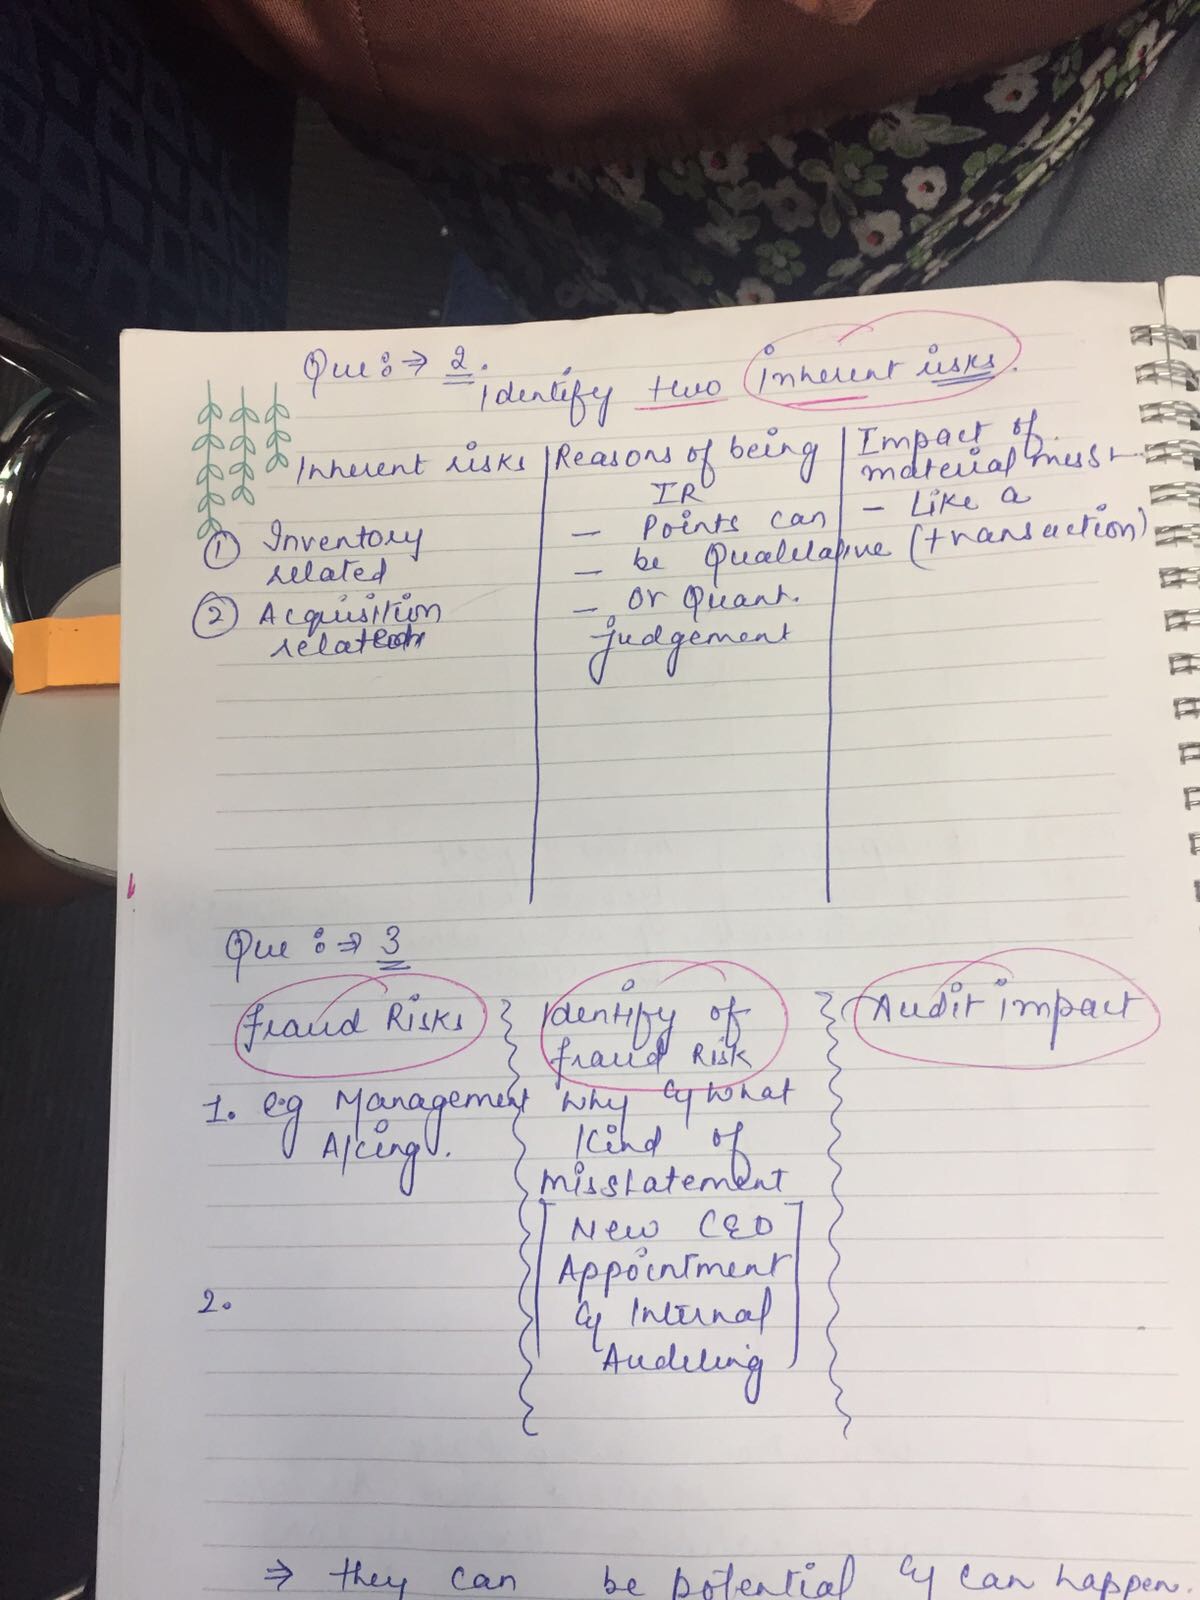 Que :⇒ 2.
Identify two inherent risks.
Inherent risks | Reasons of being IR | Impact of material misst
① Inventory related
② Acquisition
– Points can
– be Qualitative
– or Quant.
judgement
– Like a
(transaction)
Que :⇒ 3
Fraud Risks
Identify of
fraud Risk
Audit impact
1. e.g Management
A/cing.
Why & What
Kind of
Misstatement
[New CEO
Appointment
& Internal
Auditing]
2.
⇒ they can be potential & can happen.